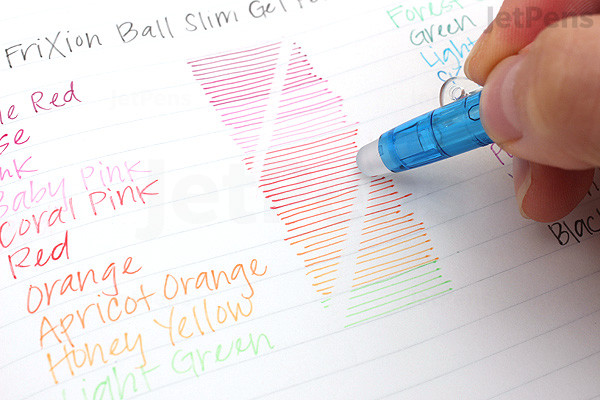 FriXion Ball Slim Gel
Red
Pink
Baby Pink
Coral Pink
Red
Orange
Apricot Orange
Honey Yellow
Light Green
Forest
Green
Light
Black
JetPens